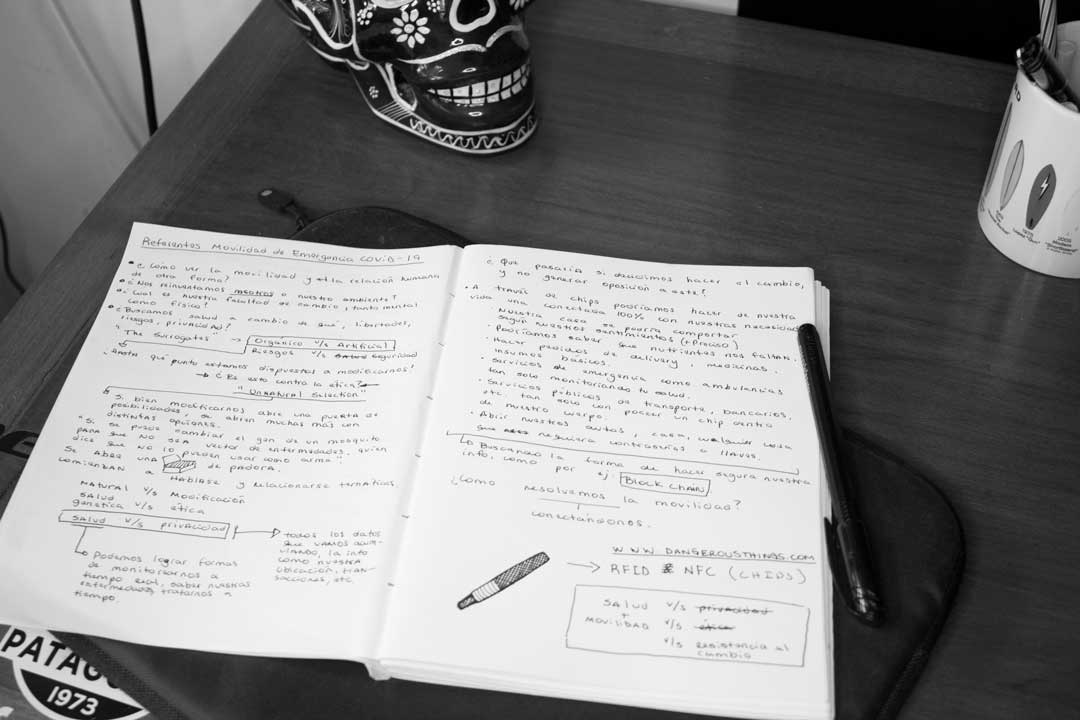 Referentes Movilidad de Emergencia COVID-19
• ¿Como ver la movilidad y la relación humana
de otra forma?
• ¿Nos reinventamos nosotros o nuestro ambiente?
• ¿Cual es nuestra facultad de cambio, tanto mental
como físico?
• ¿Buscamos salud a cambio de qué, libertades,
riesgos, privacidad?
"The Surrogates" → Organico v/s Artificial
Riesgos v/s seguridad
• Hasta qué punto estamos dispuestos a modificarnos?
→ ¿Es esto contra la etica?
"Unnatural Selection"
Si bien modificarnos abre una puerta de
posibilidades, se abren muchas mas con
distintas opciones.
"Si se puede cambiar el gen de un mosquito
para que NO sea vector de enfermedades, quien
dice que NO lo pueden usar como arma"
Se abre una de pandora.
comienzan a hablase y relacionarse tematicas.
Natural v/s Modificación
Salud v/s
genetica v/s etica
Salud v/s privacidad
Podemos lograr formas
de monitoriarnos a
tiempo real, saber nuestras
enfermedades, tratarnos a
tiempo.
todos los datos
que vamos
la info
como nuestra
ubicación, tran-
sacciones, etc.
¿Que pasaria si decidimos hacer el cambio,
y no generar oposición a este?
• A través de chips podriamos hacer de nuestra
vida una conectada 100% con nuestras necesidad
• Nuestra casa se podria comportar
según nuestros sentimientos (+Preciso)
• Podriamos saber que nutrientes nos faltan.
• Hacer pedidos de delivery, medicinas,
insumos basicos.
• Servicios de emergencia como ambulancias
tan solo monitoriando tu salud.
• Servicios públicos de transporte, bancarios,
etc. tan solo con poseer un chip dentro
de nuestro cuerpo.
• Abrir nuestros autos, casa, cualquier cosa
que requiera contraseñas o llaves.
Buscando la forma de hacer segura nuestra
info, como por ej: Block Chain.
¿Como resolvemos la movilidad?
conectandonos.
WWW.DANGEROUSTHINGS.COM
→ RFID & NFC (CHIPS)
Salud v/s privacidad
+
Movilidad v/s etica
v/s resistencia al
cambio
PATAGO
1973